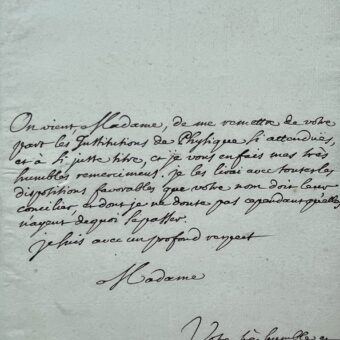 On vient, Madame, de me remettre de votre
part les Institutions de Physique si attendues,
et à si juste titre, et je vous en fais mes très
humbles remercimens. Je les lirai avec toutes les
dispositions favorables que votre nom doit leur
concilier, et dont je ne doute pas cependant quelles
n'ayent de quoi se passer.
je suis avec un profond respect
Madame
Votre très humble et